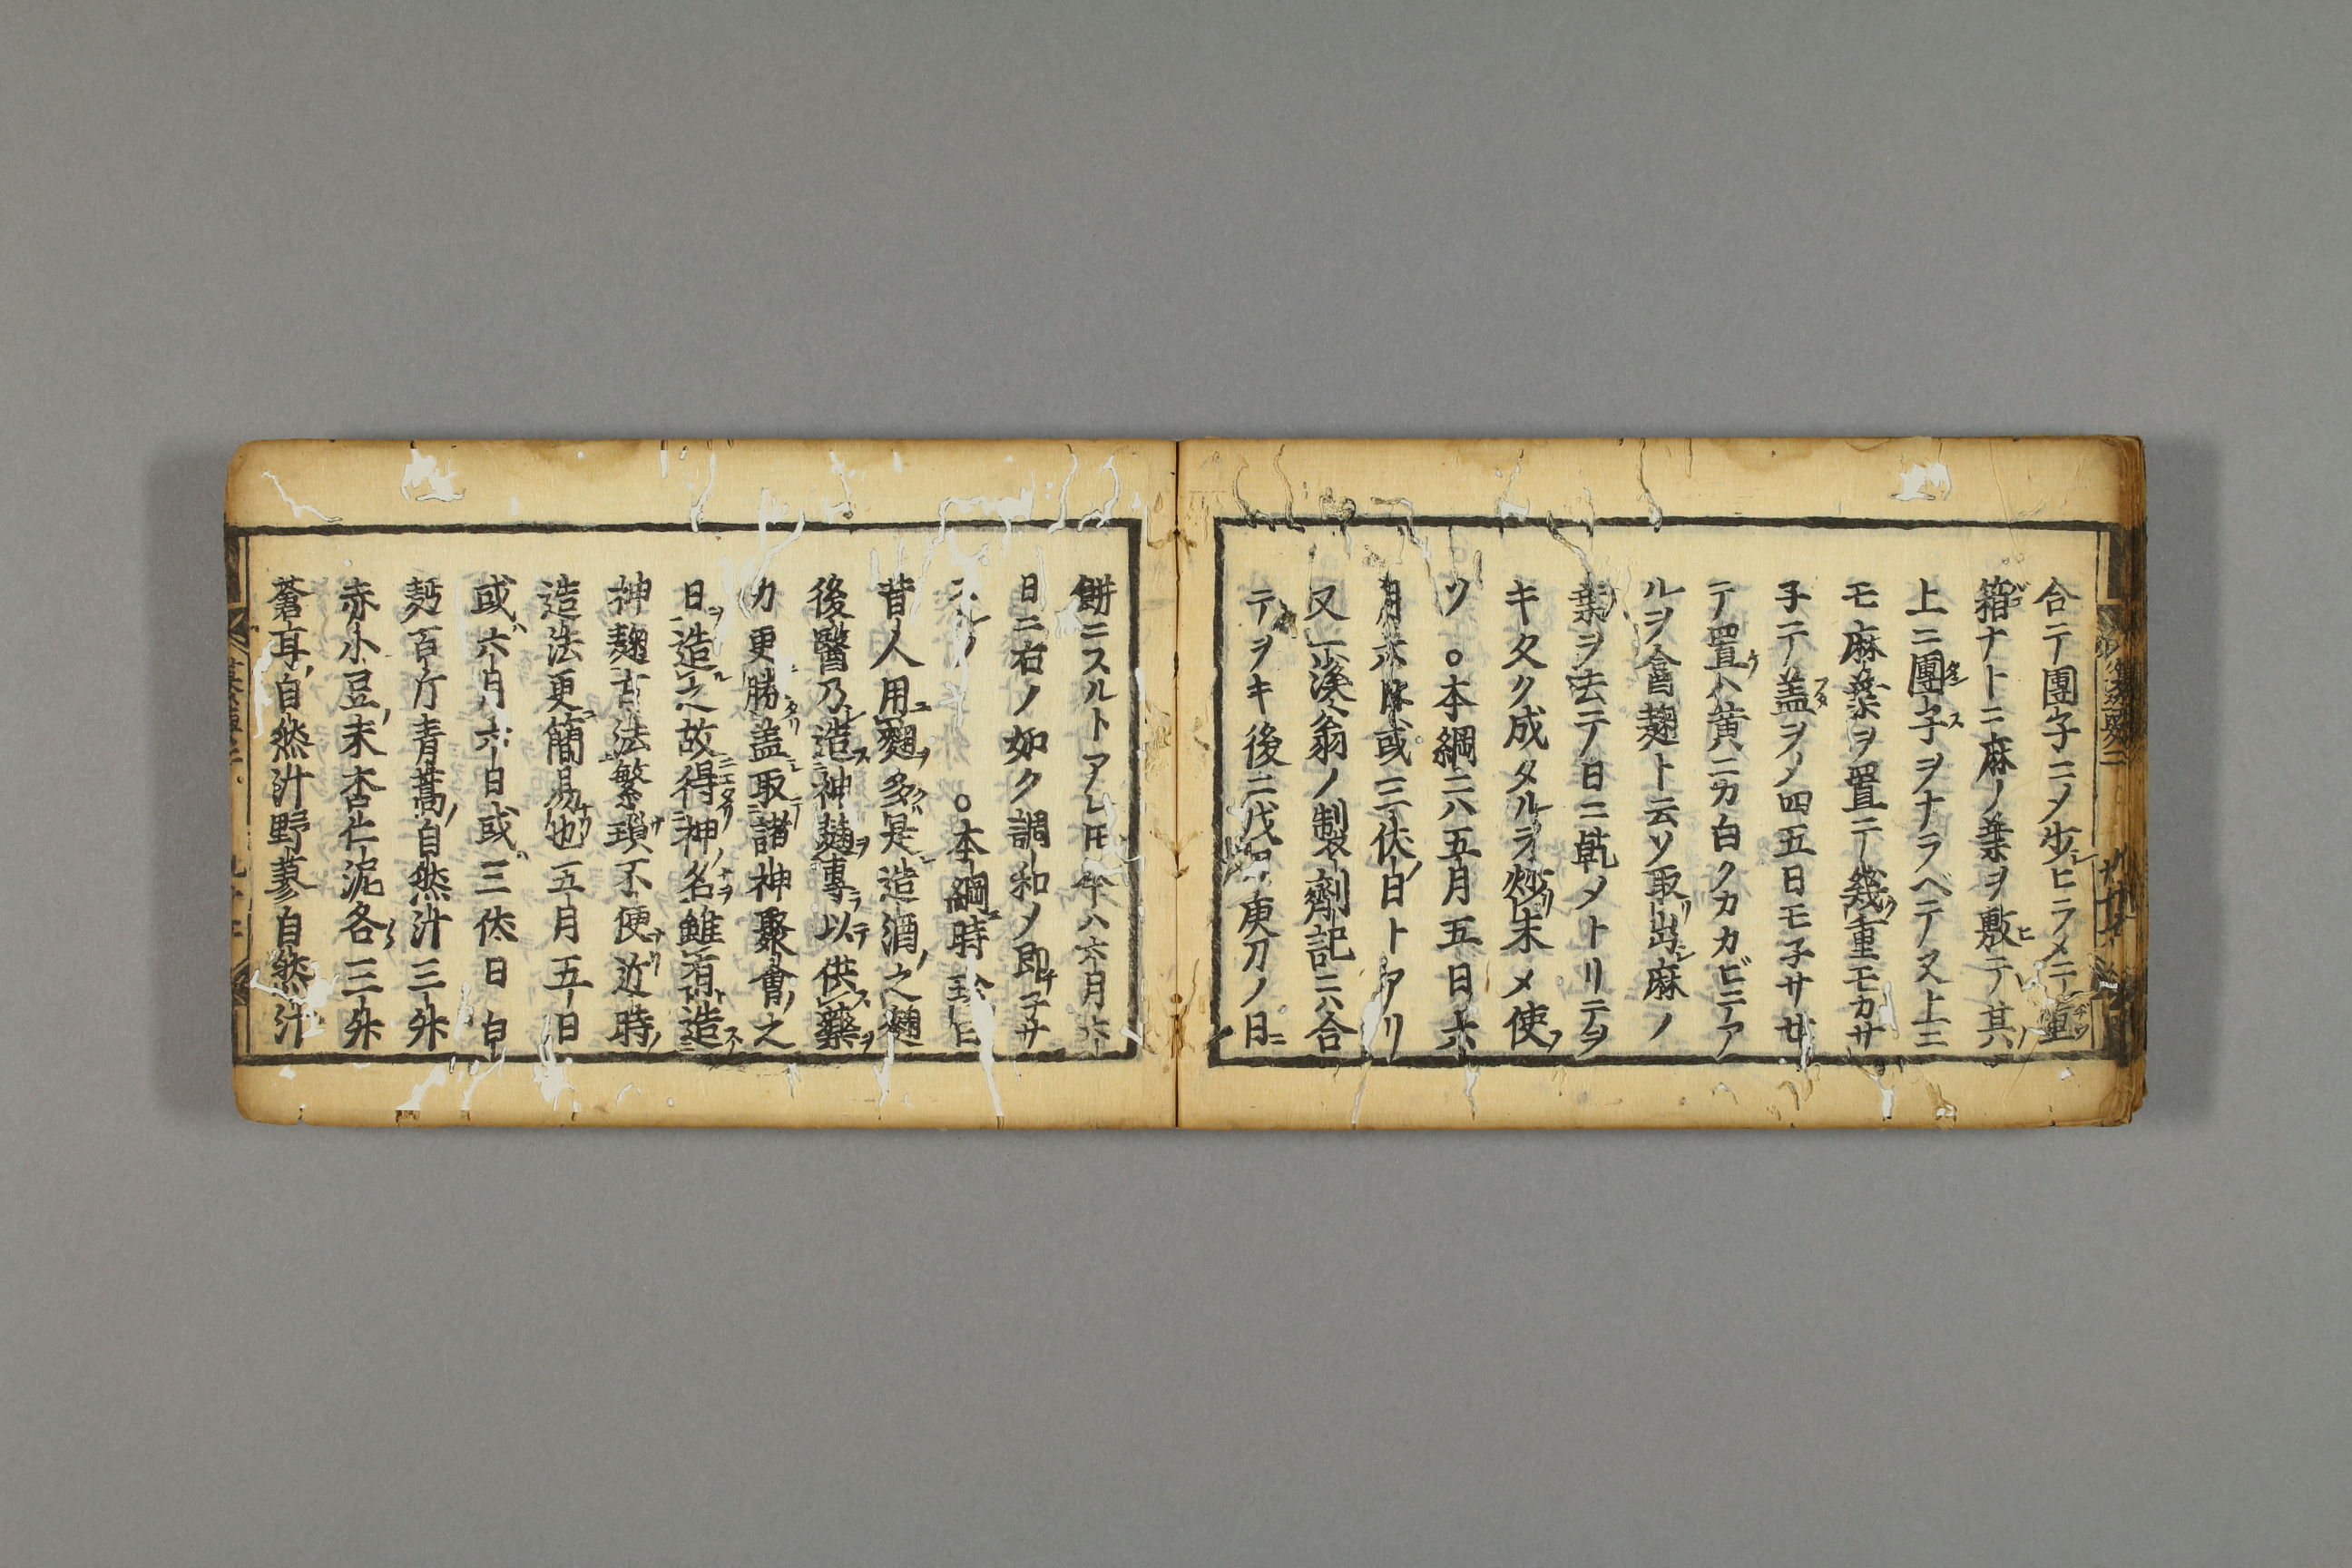 合テ團子ニメ少シヒラメテ重
箱ナトニ麻ノ葉ヲ敷テ其
上ニ團子ヲナラヘテヌ上ニ
モ麻葉ヲ置テ幾重モカサ
子テ盖ヲメ四五日モ子サせ
テ置ハ黄ニカ白クカカビニア
ルヲ會麹ト云ソ取出麻ノ
葉ヲ去テ日ニ乾メトリテヲ
キタク成タルヲ炒末メ使
ソ○本綱ニハ五月五日六
月六日或三伏日トアリ
又一溪翁ノ製劑記ニハ合
テヲキ後ニ戊 庚刀ノ日
餅ニスルトアレ𪜈今ハ六月六
日ニ右ノ如ク調和メ即子サ
○本綱時珍曰
昔人用麴多是造酒之麴
後醫乃造神麴專以供藥
力更勝盖取諸神聚會之
日造之故得神名雖有造
神麹古法繁瑣不便近時
造法更簡易也五月五日
或六月六日或三伏日白
麪百斤青蒿自然汁三升
赤小豆末杏仁泥各三升
蒼耳自然汁野蓼自然汁